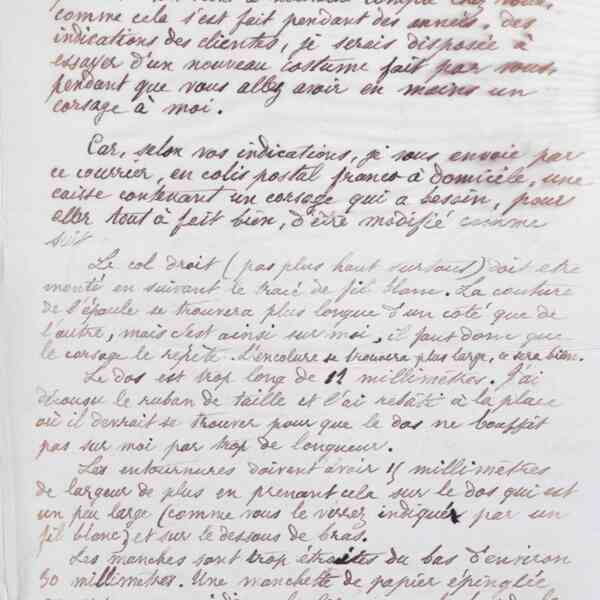 comme cela s'est fait pendant des années, des
indications des clientes, je serais disposée à
essayer d'un nouveau costume fait par vous,
pendant que vous allez avoir en mains un
corsage à moi.
Car, selon vos indications, je vous envoie par
ce courrier, en colis postal franco à domicile, une
caisse contenant un corsage qui a besoin, pour
aller tout à fait bien, d'être modifié comme
suit
Le col droit (pas plus haut surtout) doit etre
monté en suivant le tracé de fil blanc. La couture
de l'épaule se trouvera plus longue d'un coté que de
l'autre, mais c'est ainsi sur moi, il faut donc que
le corsage le repète. L'encolure se trouvera plus large, ce sera bien.
Le dos est trop long de 12 millimètres. J'ai
décousu le ruban de taille et l'ai rebâti à la place
où il devrait se trouver pour que le dos ne bouffât
pas sur moi par trop de longueur.
Les entournures doivent avoir 15 millimètres
de largeur de plus en prenant cela sur le dos qui est
un peu large (comme vous le verrez indiqué par un
fil blanc) et sur le dessous de bras.
Les manches sont trop étroites du bas d'environ
30 millimètres. Une manchette de papier épinglée